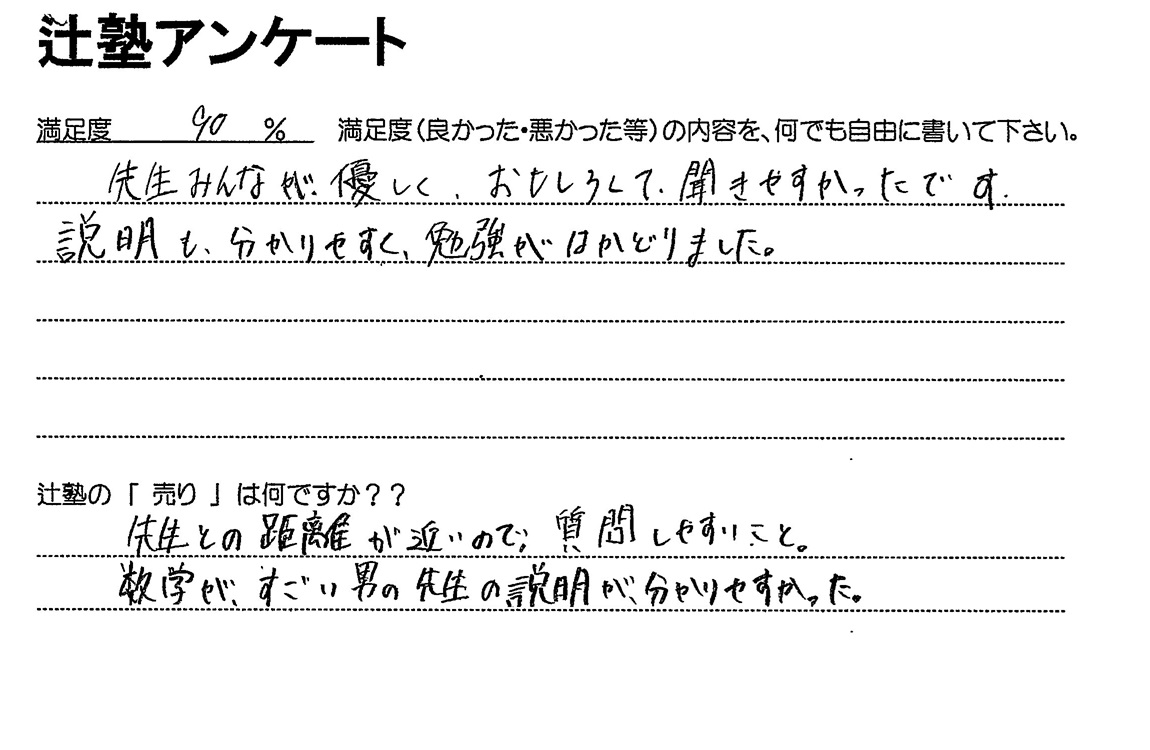 辻塾アンケート
満足度 90 % 満足度(良かった・悪かった等)の内容を、何でも自由に書いて下さい。
先生みんなが、優しく、おもしろくて、聞きやすかったです。
説明も、分かりやすく、勉強がはかどりました。
辻塾の「 売り 」は何ですか??
先生との距離が近いので、質問しやすいこと。
数学が、すごい男の先生の説明が、分かりやすかった。